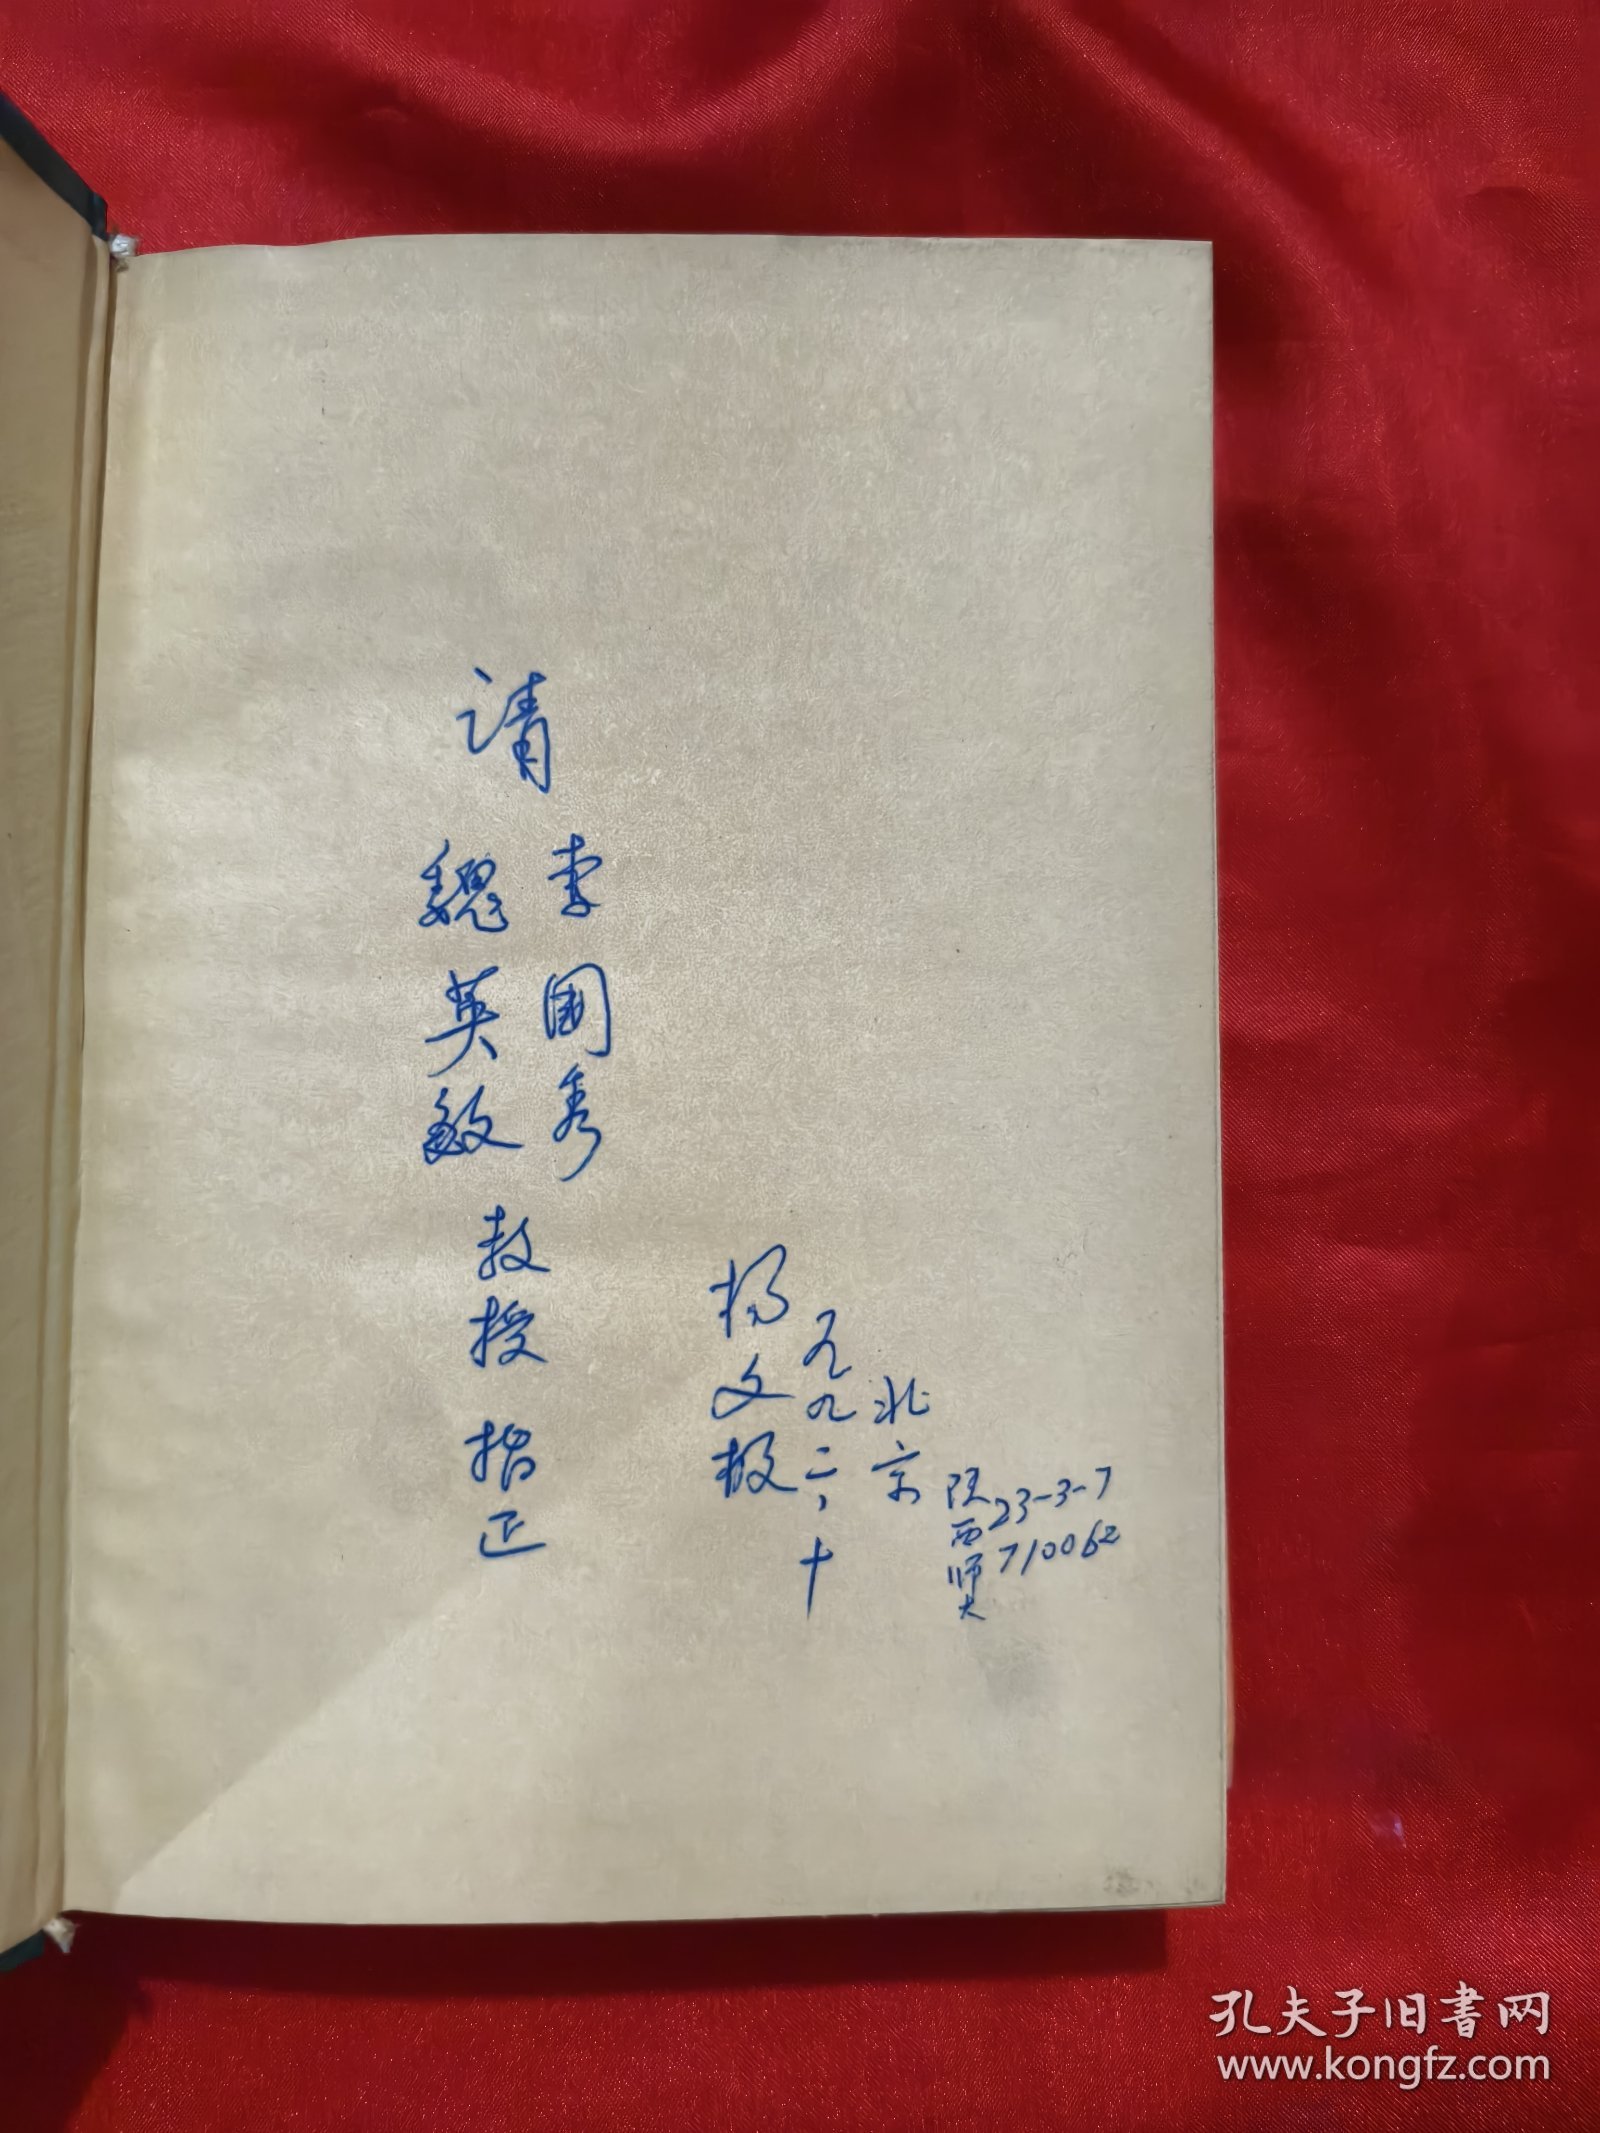 请
李国秀
魏英敏
教授指正
杨文极
一九九二、十
北京
陕西师大
23-3-7
710062
孔夫子旧书网
www.kongfz.com